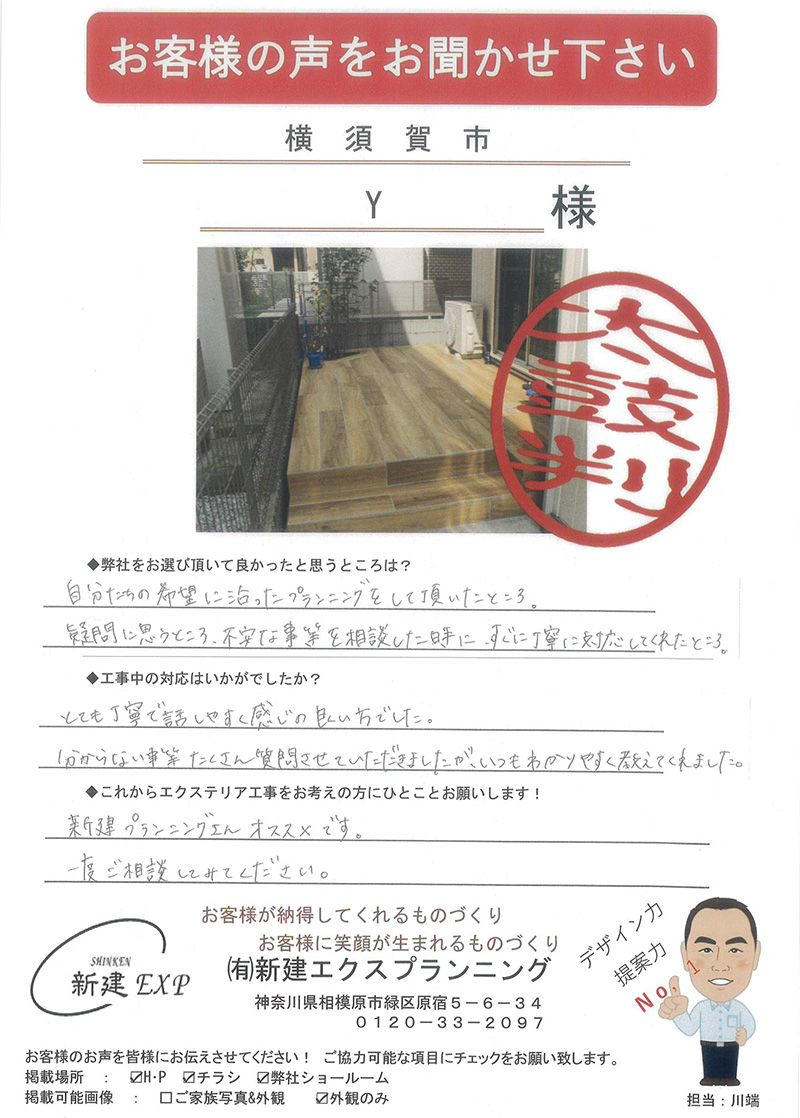 お客様の声をお聞かせ下さい
横須賀市
Y 様
太鼓判
◆弊社をお選び頂いて良かったと思うところは？
自分たちの希望に沿ったプランニングをして頂いたところ。
疑問に思うところ、不安な事等を相談した時に、すぐに丁寧に対応してくれたところ。
◆工事中の対応はいかがでしたか？
とても丁寧で話しやすく感じの良い方でした。
分からない事等たくさん質問させていただきましたが、いつもわかりやすく教えてくれました。
◆これからエクステリア工事をお考えの方にひとことお願いします！
新建プランニングさん オススメです。
一度ご相談してみてください。
お客様が納得してくれるものづくり
お客様に笑顔が生まれるものづくり
SHINKEN
新建 EXP
㈲新建エクスプランニング
神奈川県相模原市緑区原宿５－６－３４
０１２０－３３－２０９７
デザイン力
提案力
No,1
お客様のお声を皆様にお伝えさせてください！ ご協力可能な項目にチェックをお願い致します。
掲載場所 ： ☑H･P ☑チラシ ☑弊社ショールーム
掲載可能画像 ： □ご家族写真&外観 ☑外観のみ
担当：川端